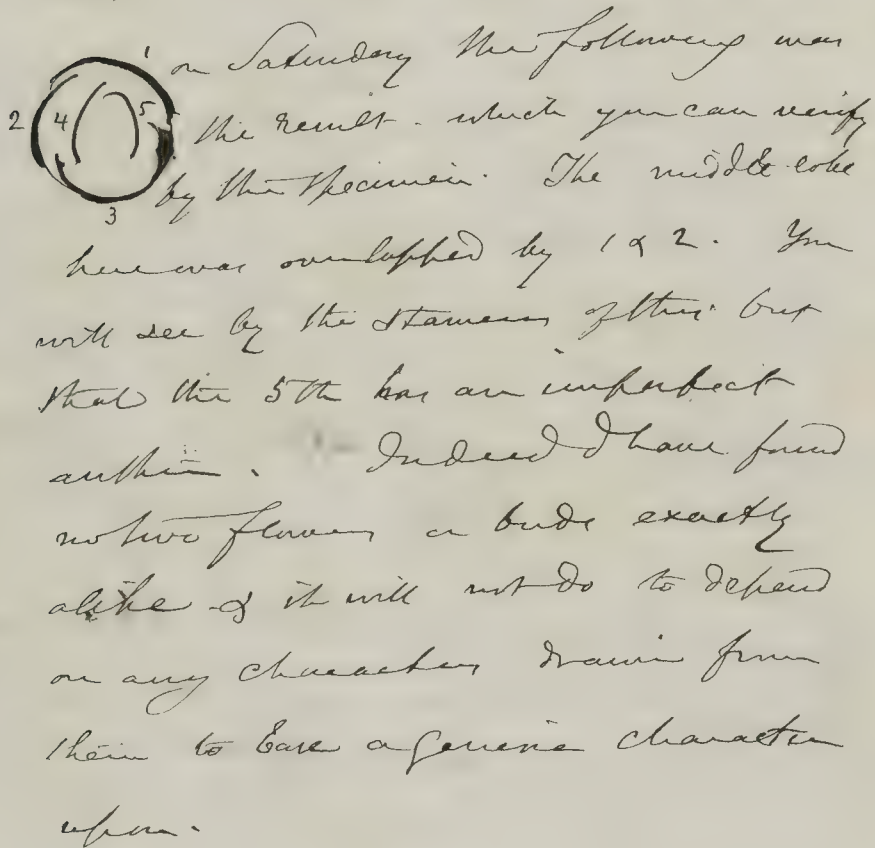 1
2 4 5
3
on Saturday the following was
the result - which you can verify
by this specimen. The middle lobe
here was overlapped by 1 & 2. You
will see by the stamens of this bud
that the 5th has an imperfect
anther. Indeed I have found
no two flowers or buds exactly
alike & it will not do to depend
on any characters drawn from
them to base a generic character
upon.